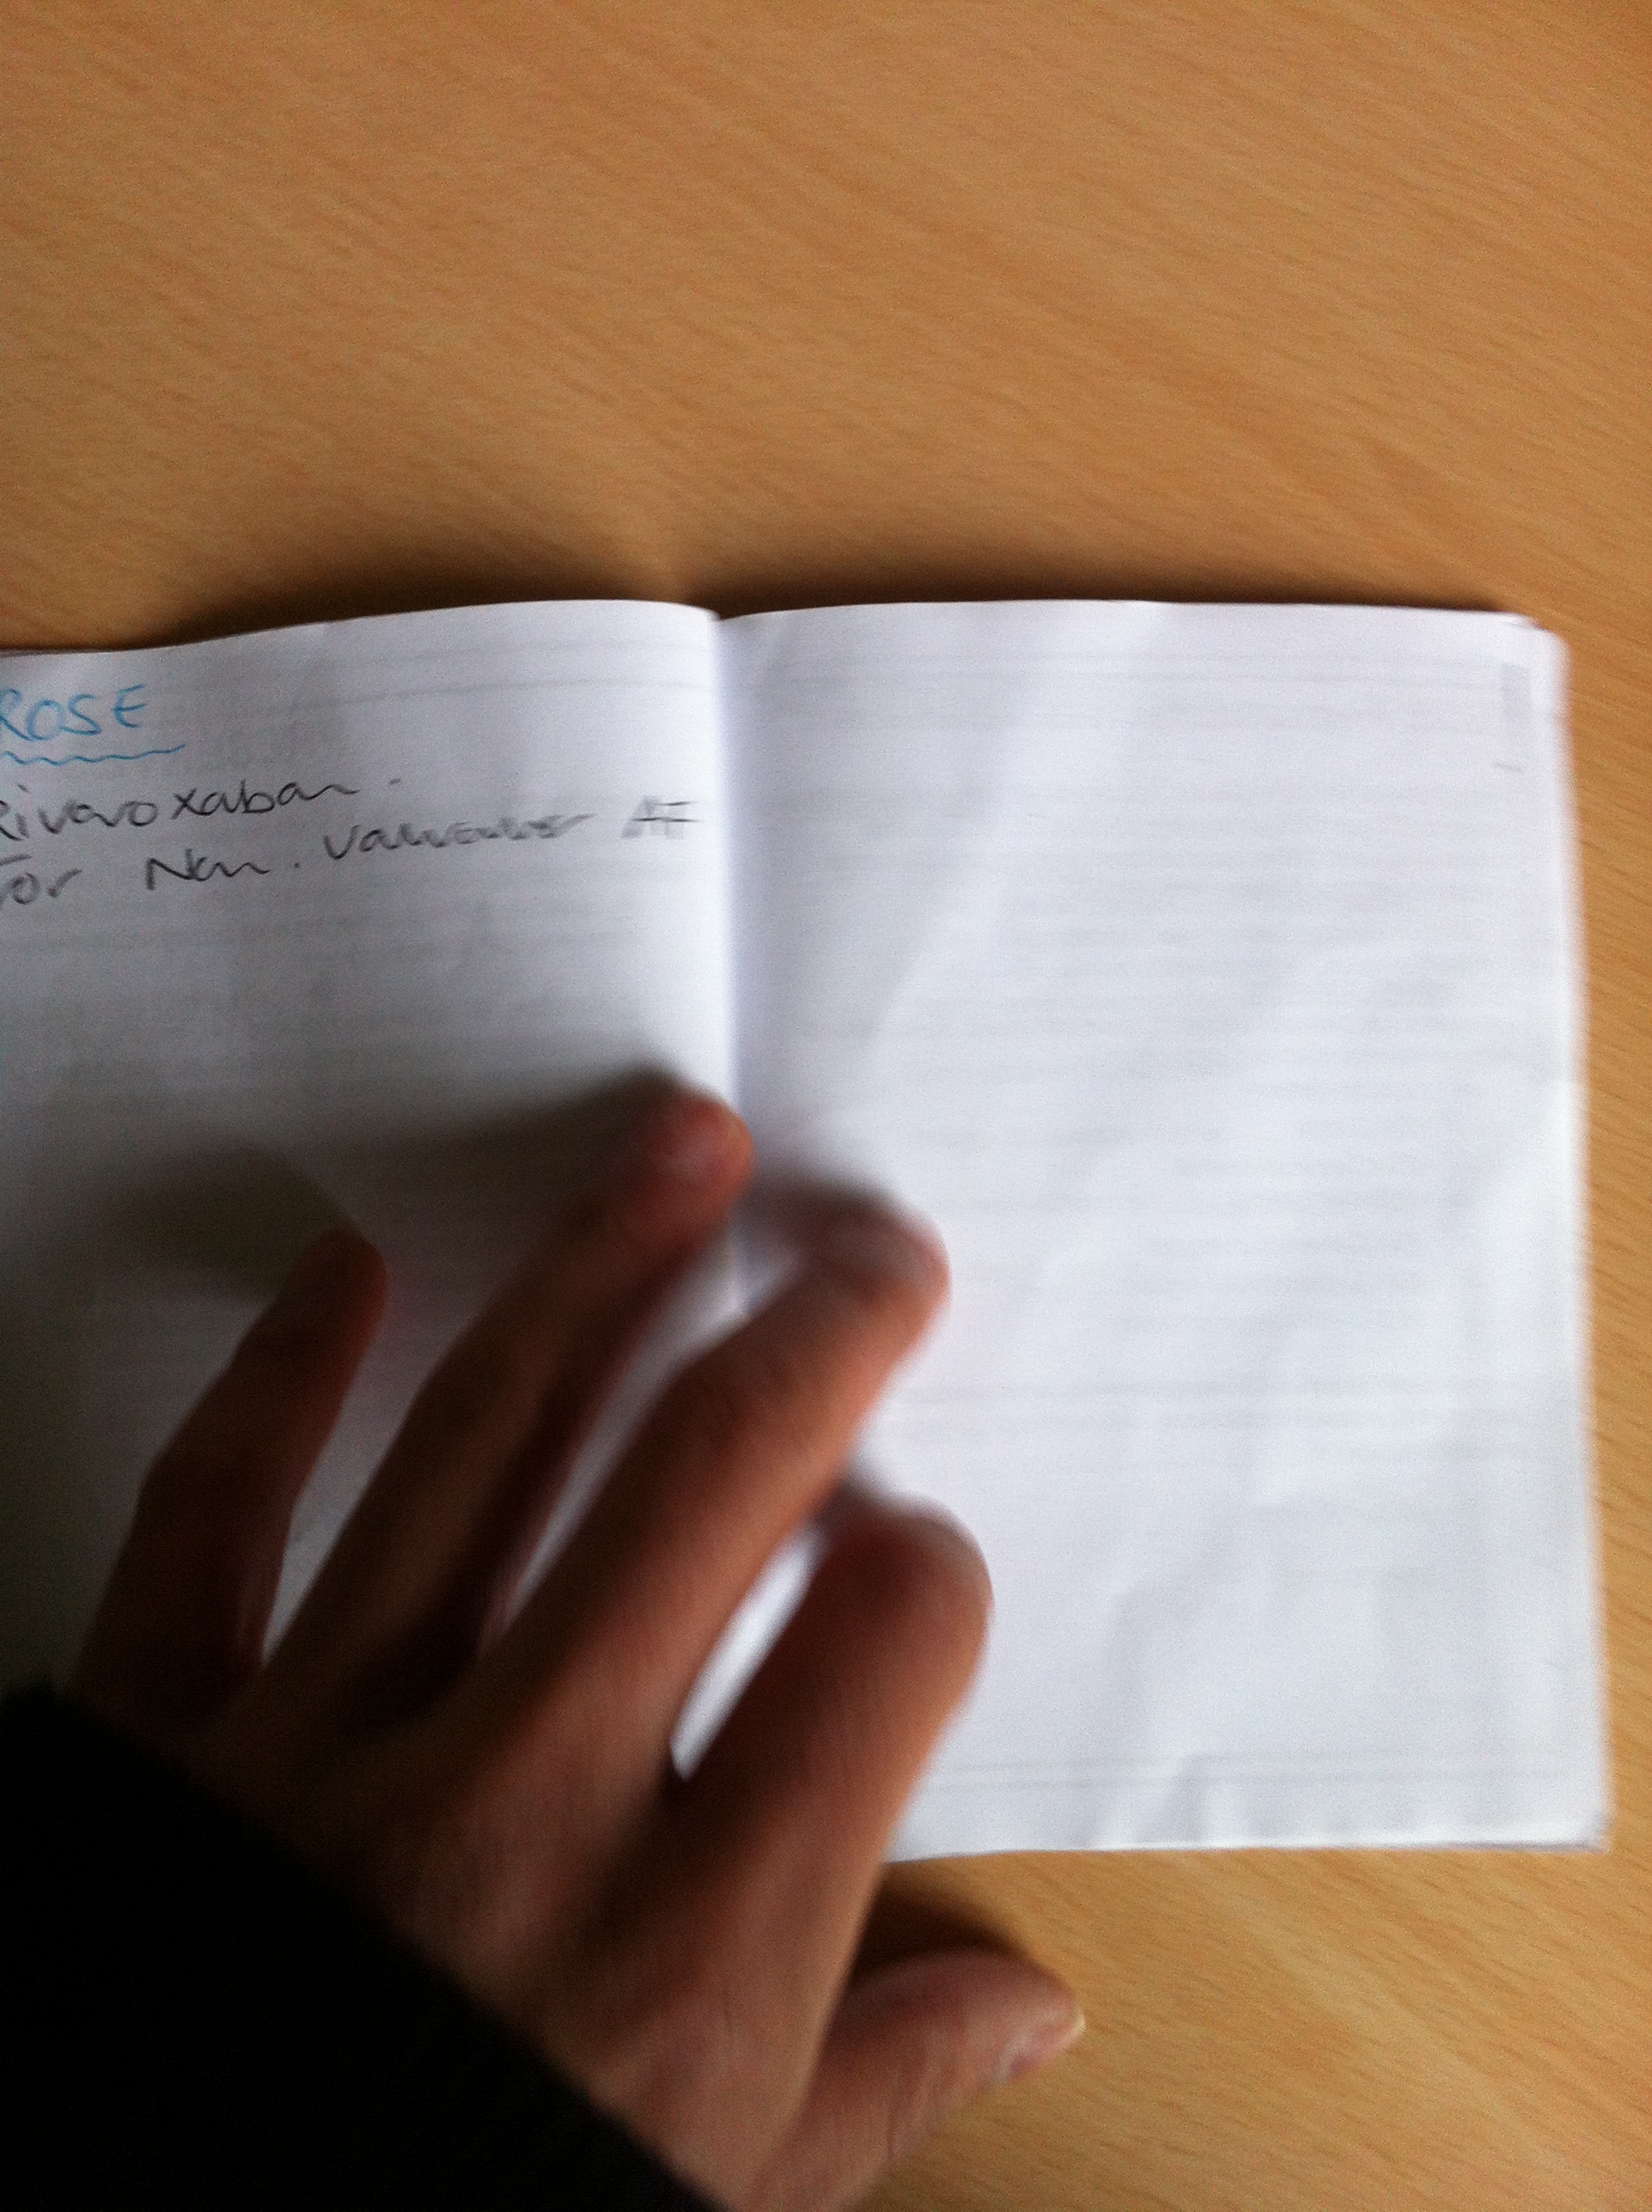 ROSE
Rivaroxaban.
for Non. Valvular AF